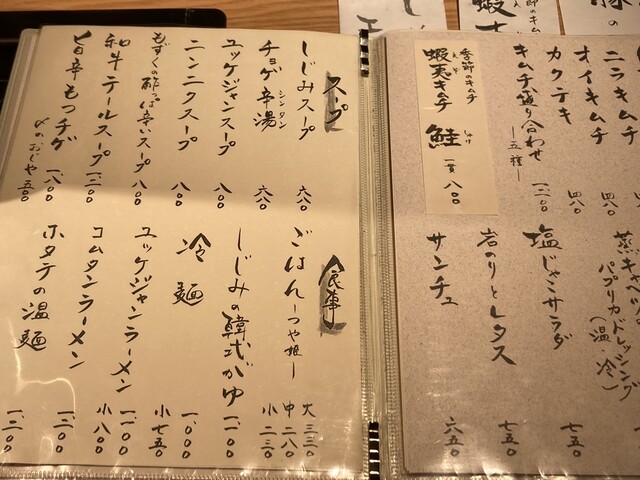 ニラキムチ
オイキムチ 四八〇
カクテキ 四八〇
キムチ盛り合わせ —五種— 一、二〇〇
季節のキムチ
蝦夷キムチ 鮭 一貫 八〇〇
えぞ
しゃけ
パプリカドレッシング
(温・冷)
塩じゃこサラダ 七五〇
岩のりとレタス 七五〇
サンチュ 六五〇
スープ
しじみスープ 六八〇
チョゲ辛湯 六八〇
シンタン
ユッケジャンスープ 八〇〇
ニンニクスープ 八〇〇
もずくの酢っぱ辛いスープ 八〇〇
和牛テールスープ 一、二〇〇
旨辛もつチゲ 一、八〇〇
〆のおじや 五〇〇
食事
ごはん—つや姫— 大 三三〇
中 二八〇
小 二三〇
しじみの韓式がゆ 一、一〇〇
冷麺 一、〇〇〇
小 七五〇
ユッケジャンラーメン 一、一〇〇
小 八〇〇
コムタンラーメン 一、二〇〇
ホタテの温麺 一、二〇〇